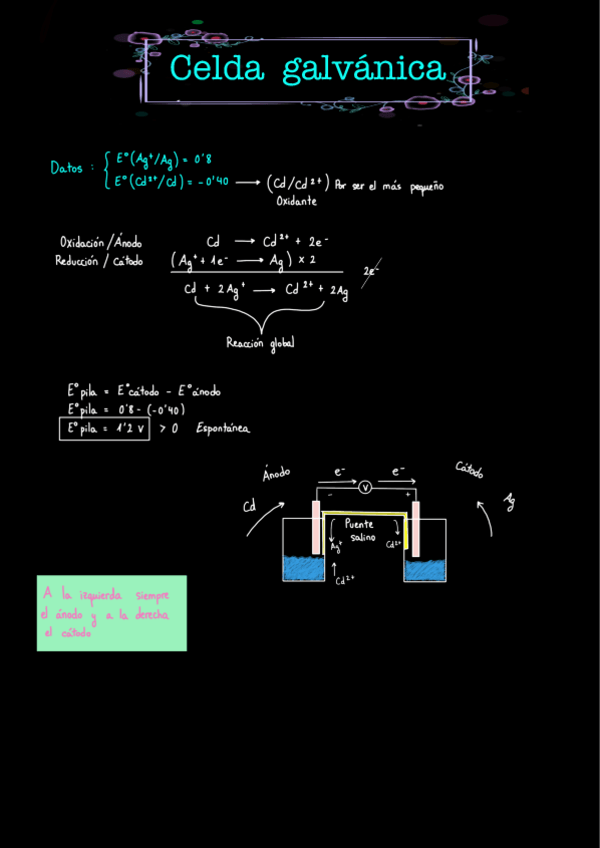 Celda galvánica
Datos : E°(Ag⁺/Ag) = 0'8
E°(Cd²⁺/Cd) = -0'40 ⟶ (Cd/Cd²⁺) Por ser el más pequeño
Oxidante
Oxidación / Ánodo Cd ⟶ Cd²⁺ + 2e⁻
Reducción / Cátodo (Ag⁺ + 1e⁻ ⟶ Ag) × 2
2e⁻
Cd + 2Ag⁺ ⟶ Cd²⁺ + 2Ag
Reacción global
E° pila = E° cátodo - E° ánodo
E° pila = 0'8 - (-0'40)
E° pila = 1'2 V > 0 Espontánea
Ánodo e⁻ e⁻ Cátodo
- V +
Cd Ag
Puente
salino
Ag⁺ Cd²⁺
Cd²⁺
A la izquierda siempre
el ánodo y a la derecha
el cátodo